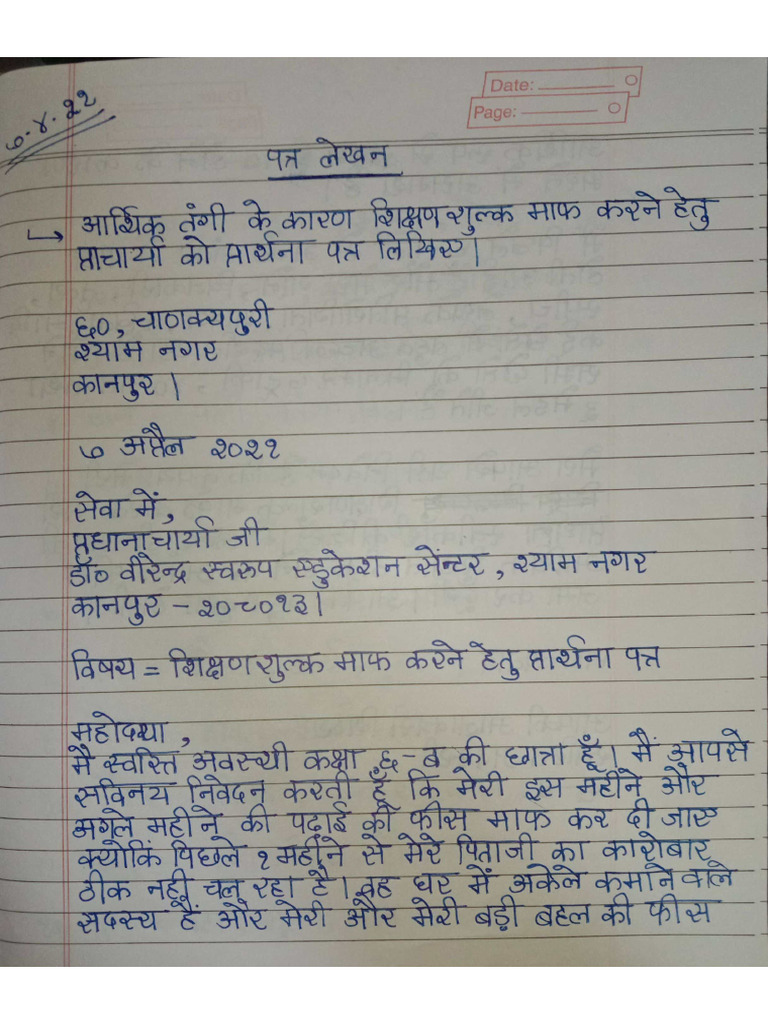 Date:
Page:
७.४.२२
पत्र लेखन
आर्थिक तंगी के कारण शिक्षण शुल्क माफ करने हेतु
प्राचार्या को प्रार्थना पत्र लिखिए।
६०, चाणक्यपुरी
श्याम नगर
कानपुर।
७ अप्रैल २०२२
सेवा में,
प्रधानाचार्या जी
डॉ० वीरेन्द्र स्वरुप एडुकेशन सेंन्टर, श्याम नगर
कानपुर - २०८०१३।
विषय = शिक्षण शुल्क माफ करने हेतु प्रार्थना पत्र
महोदया,
मै स्वस्ति अवस्थी कक्षा ६-ब की छात्रा हूँ। मैं आपसे
सविनय निवेदन करती हूँ कि मेरी इस महीने और
अगले महीने की पढ़ाई की फीस माफ कर दी जाए
क्योकिं पिछले १ महीने से मेरे पिताजी का कारोबार
ठीक नही चल रहा है। वह घर में अकेले कमाने वाले
सदस्य हैं और मेरी और मेरी बड़ी बहन की फीस